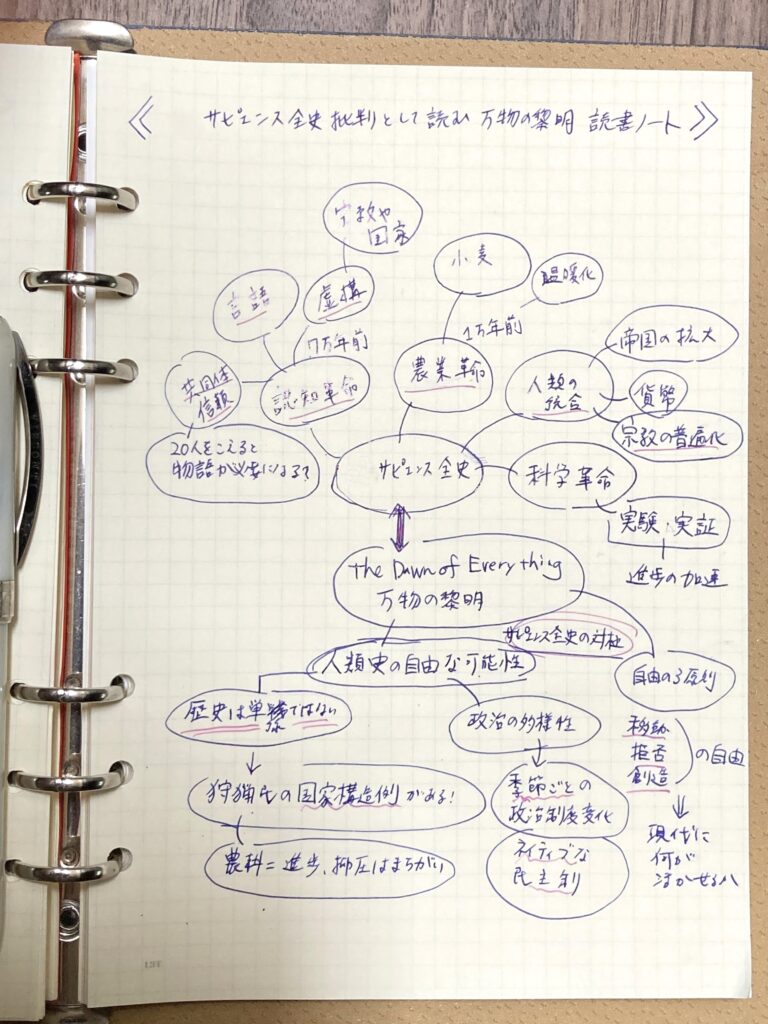 《 サピエンス全史批判として読む 万物の黎明 読書ノート 》
宗教や
国家
言語
虚構
7万年前
共同性
信頼
認知革命
20人をこえると
物語が必要になる?
小麦
温暖化
1万年前
農業革命
帝国の拡大
人類の
統合
貨幣
宗教の普遍化
サピエンス全史
科学革命
実験・実証
進歩の加速
The Dawn of Everything
万物の黎明
サピエンス全史の対極
人類史の自由な可能性
自由の3原則
歴史は単線ではない
政治の多様性
移動
拒否
創造
の自由
狩猟民の国家構造例がある!
季節ごとの
政治制度変化
農耕=進歩、抑圧はまちがい
ネイティブな
民主制
現代に
何が
活かせるか